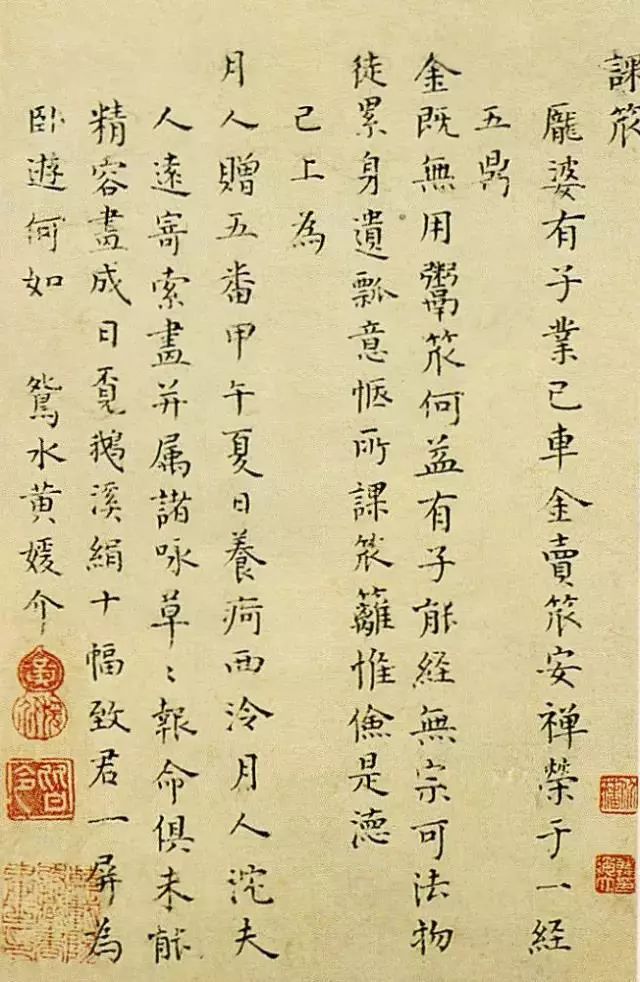 課笊
龐婆有子業已車金賣笊安禅榮于一經
五鼎
金既無用鬻笊何益有子能經無宗可法物
徒累身遺瓢意惬所課笊籬惟儉是德
已上為
月人贈五畨甲午夏日養疴西泠月人沱夫
人遠寄索畫并属諸咏草〻報命俱未能
精容畫成日覔鵝溪絹十幅致君一屏為
卧遊何如 鴛水黄媛介